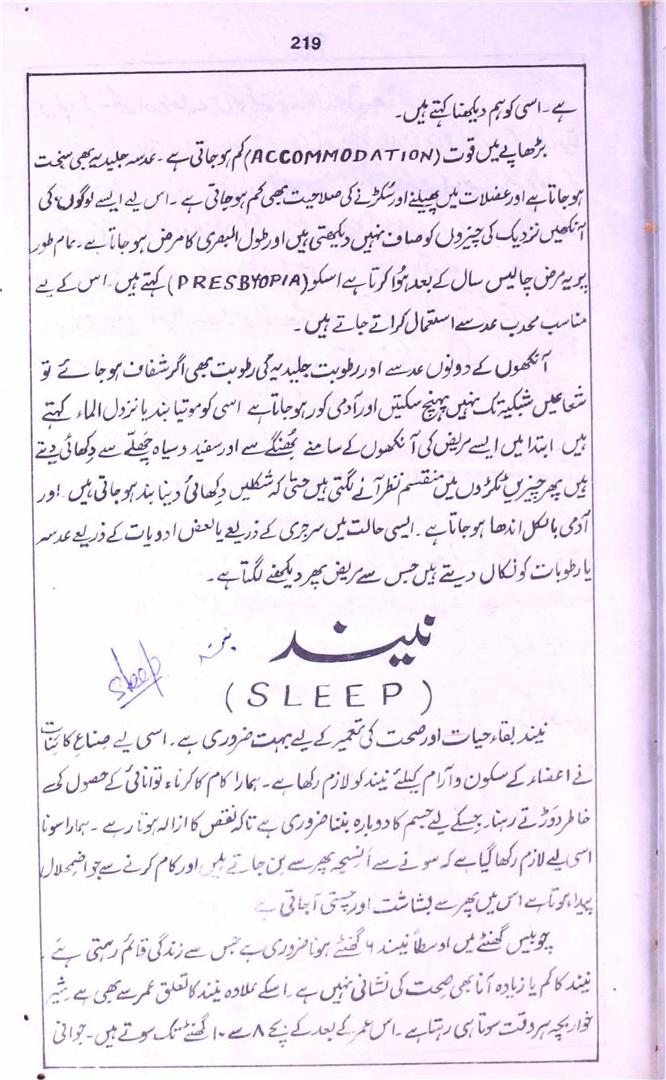 219
ہے۔ اسی کو ہم دیکھنا کہتے ہیں۔
بڑھاپے میں قوت (ACCOMMODATION) کم ہو جاتی ہے۔ عدسہ جلیدیہ بھی سخت
ہو جاتا ہے اور عضلات میں پھیلنے اور سکڑنے کی صلاحیت بھی کم ہو جاتی ہے۔ اس لیے ایسے لوگوں کی
آنکھیں نزدیک کی چیزوں کو صاف نہیں دیکھتی ہیں اور طول البصری کا مرض ہو جاتا ہے۔ عام طور
پر یہ مرض چالیس سال کے بعد ہُوا کرتا ہے اسکو (PRESBYOPIA) کہتے ہیں۔ اس کے لیے
مناسب محدب عدسے استعمال کراتے جاتے ہیں۔
آنکھوں کے دونوں عدسے اور رطوبت جلیدیہ کی رطوبت بھی اگر شفاف ہو جائے تو
شعاعیں شبکیہ تک نہیں پہنچ سکتیں اور آدمی کور ہو جاتا ہے اسی کو موتیا بند یا نزول الماء کہتے
ہیں۔ ابتدا میں ایسے مریض کی آنکھوں کے سامنے بُھنگے سے اور سفید و سیاہ چھلّے سے دِکھائی دیتے
ہیں پھر چیزیں ٹکڑوں میں منقسم نظر آنے لگتی ہیں حتیٰ کہ شکلیں دِکھائی دینا بند ہو جاتی ہیں۔ اور
آدمی بالکل اندھا ہو جاتا ہے۔ ایسی حالت میں سرجری کے ذریعے یا بعض ادویات کے ذریعے عدسہ
یا رطوبات کو نکال دیتے ہیں جس سے مریض پھر دیکھنے لگتا ہے۔
نیند
sleep
(SLEEP)
نیند بقاء حیات اور صحت کی تعمیر کے لیے بہت ضروری ہے۔ اسی لیے صناعِ کائنات
نے اعضاء کے سکون و آرام کیلئے نیند کو لازم رکھا ہے۔ ہمارا کام کا کرناء توانائی کے حصول کی
خاطر دوڑتے رہنا۔ جسکے لیے جسم کا دوبارہ بننا ضروری ہے تاکہ نقص کا ازالہ ہوتا رہے۔ ہمارا سونا
اسی لیے لازم رکھا گیا ہے کہ سونے سے انسیجہ پھر سے بن جاتے ہیں اور کام کرنے سے جو اضمحلال
پیدا ہوتا ہے اس میں پھر سے بشاشت اور چستی آ جاتی ہے
چوبیس گھنٹے میں اوسطاً نیند ۶ گھنٹے ہونا ضروری ہے جس سے زندگی قائم رہتی ہے۔
نیند کا کم یا زیادہ آنا بھی صِحت کی نشانی نہیں ہے۔ اسکے علاوہ نیند کا تعلق عمر سے بھی ہے شِیر
خوار بچہ ہر وقت سوتا ہی رہتا ہے۔ اس عمر کے بعد کے بچے ۸ سے ۱۰ گھنٹے تک سوتے ہیں۔ جوانی